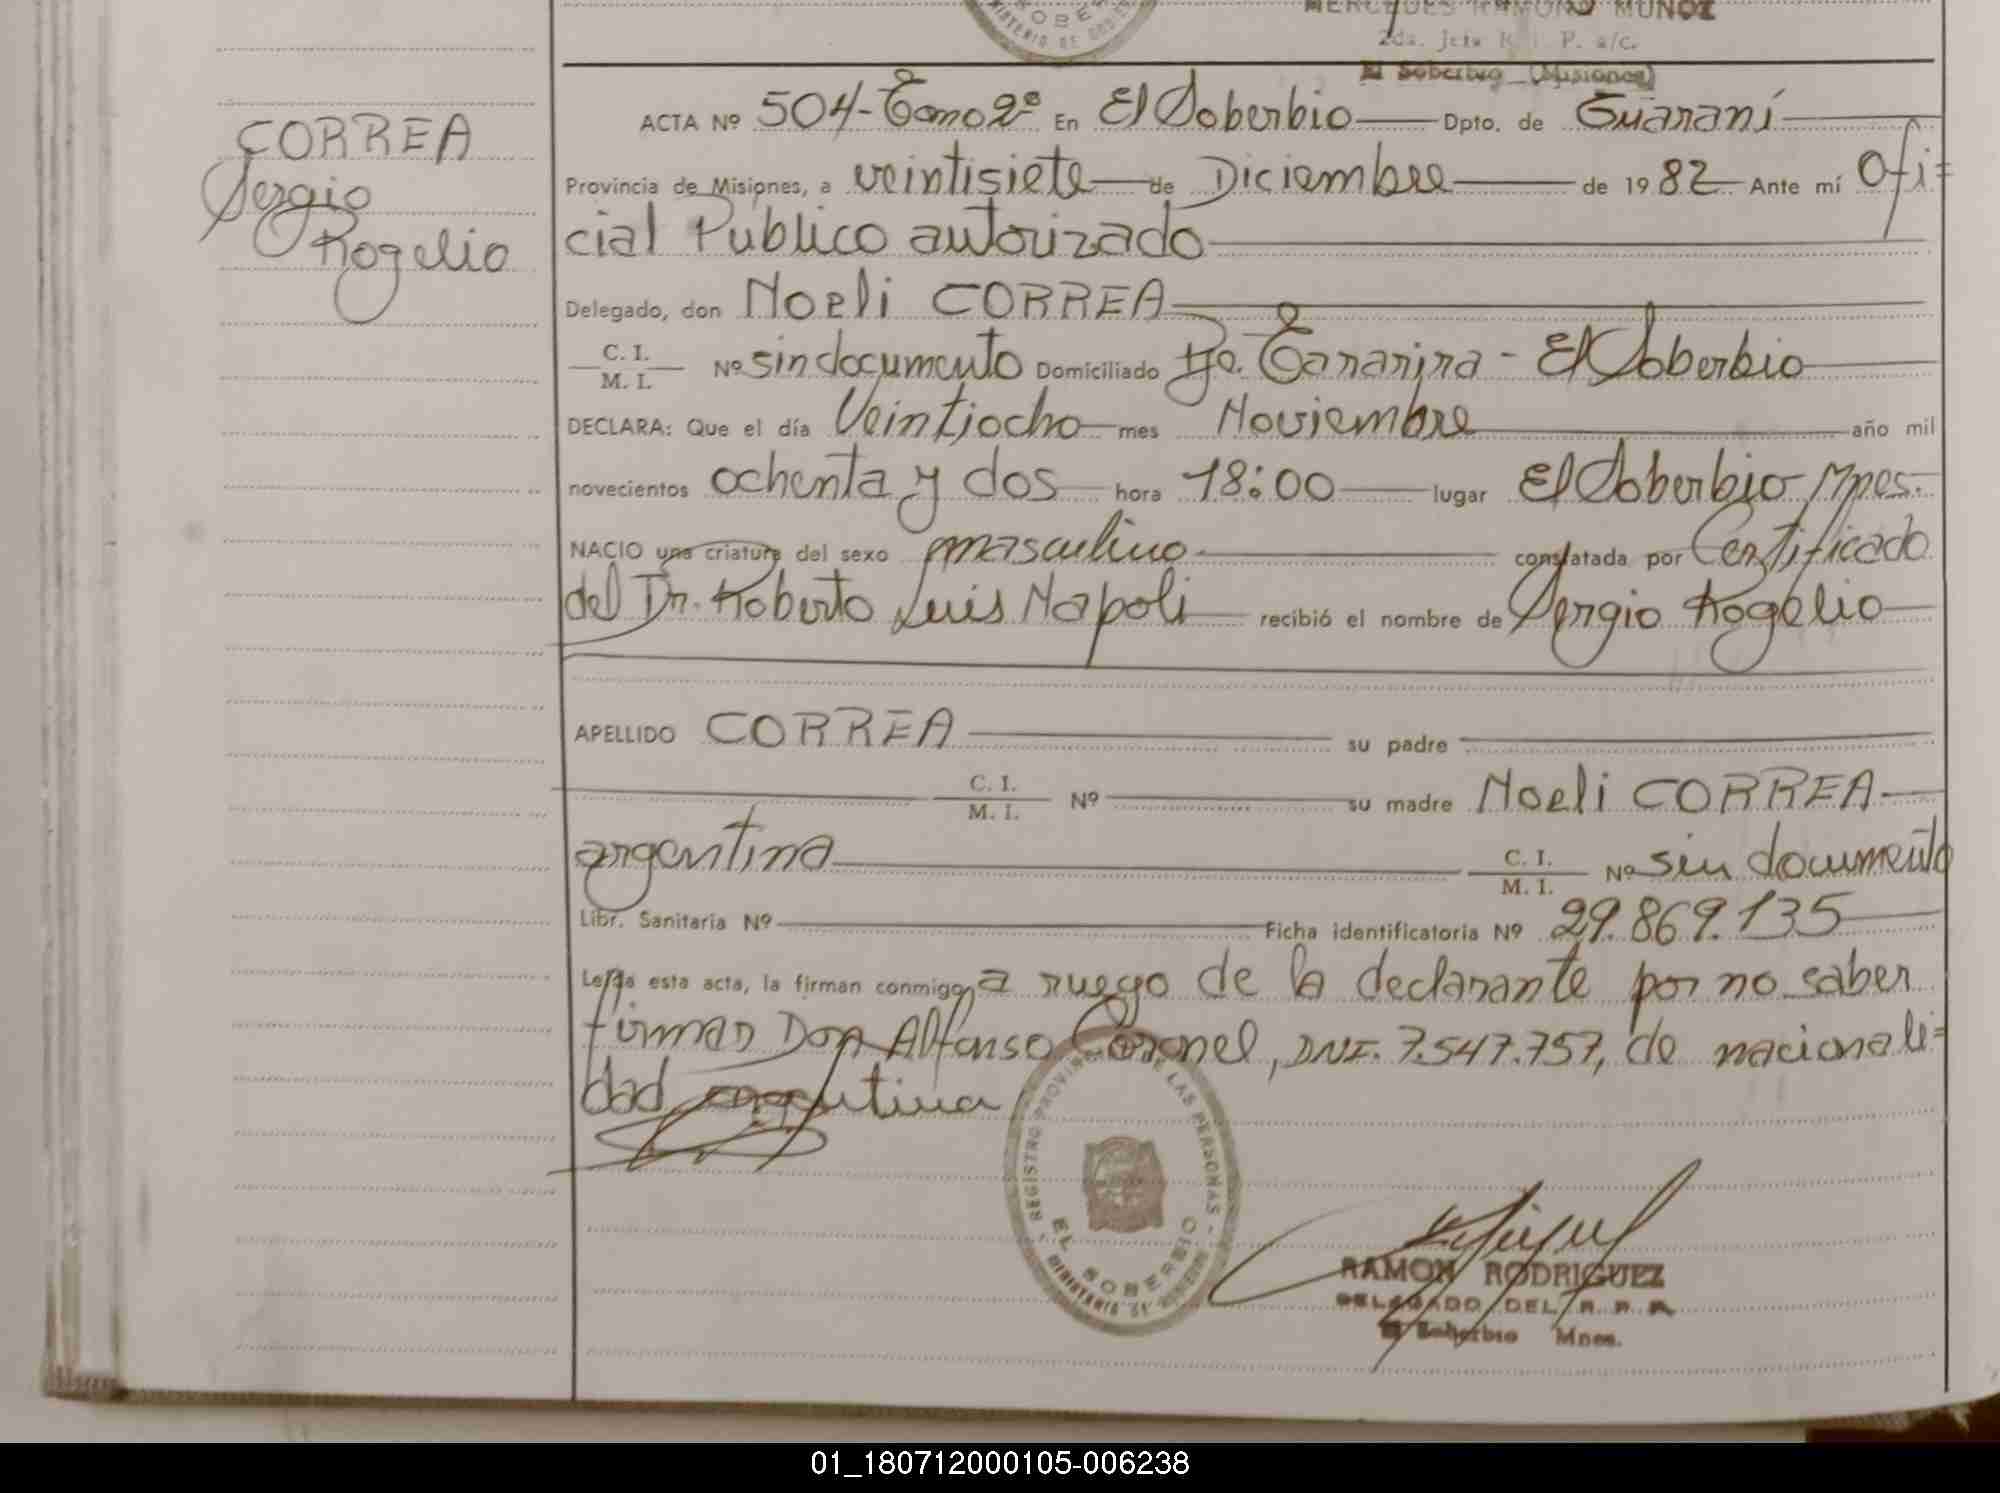 MERCEDES RAMONA MUÑOZ
2da. Jefe R. P. a/c.
El Soberbio (Misiones)
CORREA
Sergio
Rogelio
ACTA Nº 504-Tomo2º En El Soberbio Dpto. de Guaraní
Provincia de Misiones, a veintisiete de Diciembre de 1982 Ante mí Ofi=
cial Público autorizado
Delegado, don Noeli CORREA
C. I.
M. I. Nº sin documento Domiciliado Pje. Tararira - El Soberbio
DECLARA: Que el día Veintiocho mes Noviembre año mil
novecientos ochenta y dos hora 18:00 lugar El Soberbio Mnes.
NACIO una criatura del sexo masculino constatada por Certificado
del Dr. Roberto Luis Napoli recibió el nombre de Sergio Rogelio
APELLIDO CORREA su padre
C. I.
M. I. Nº su madre Noeli CORREA
argentina C. I.
M. I. Nº sin documento
Libr. Sanitaria Nº Ficha identificatoria Nº 29.869.135
Leída esta acta, la firman conmigo, a ruego de la declarante por no saber
firmar Don Alfonso Coronel, DNI. 7.547.757, de nacionali=
dad argentina
REGISTRO PROVINCIAL DE LAS PERSONAS
EL SOBERBIO
MINISTERIO DE GOBIERNO
RAMON RODRIGUEZ
DELEGADO DEL R. P. P.
El Soberbio Mnes.
01_180712000105-006238